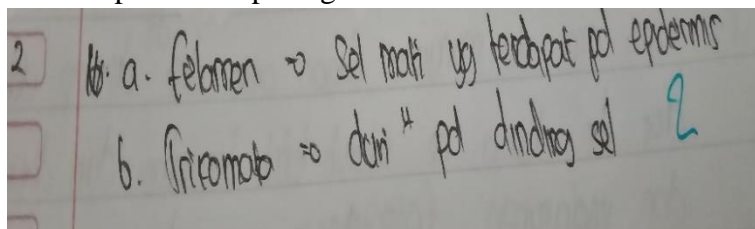 2 a. felamen => Sel mati yg terdapat pd epidermis
b. Trikomata => duri" pd dinding sel 2